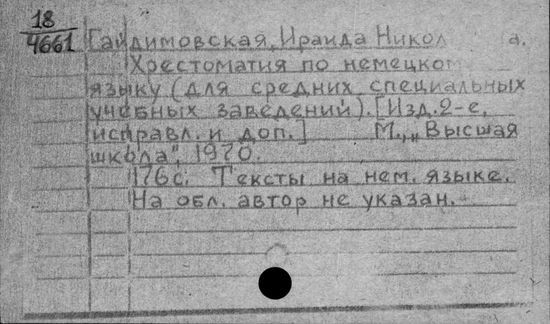 18
4661
Гайдимовская, Ираида Никол а.
Хрестоматия по немецком
языку (для средних специальных
учебных заведений). [Изд. 2-е,
исправл. и доп.] М., „Высшая
школа", 1970.
176с. Тексты на нем. языке.
На обл. автор не указан.